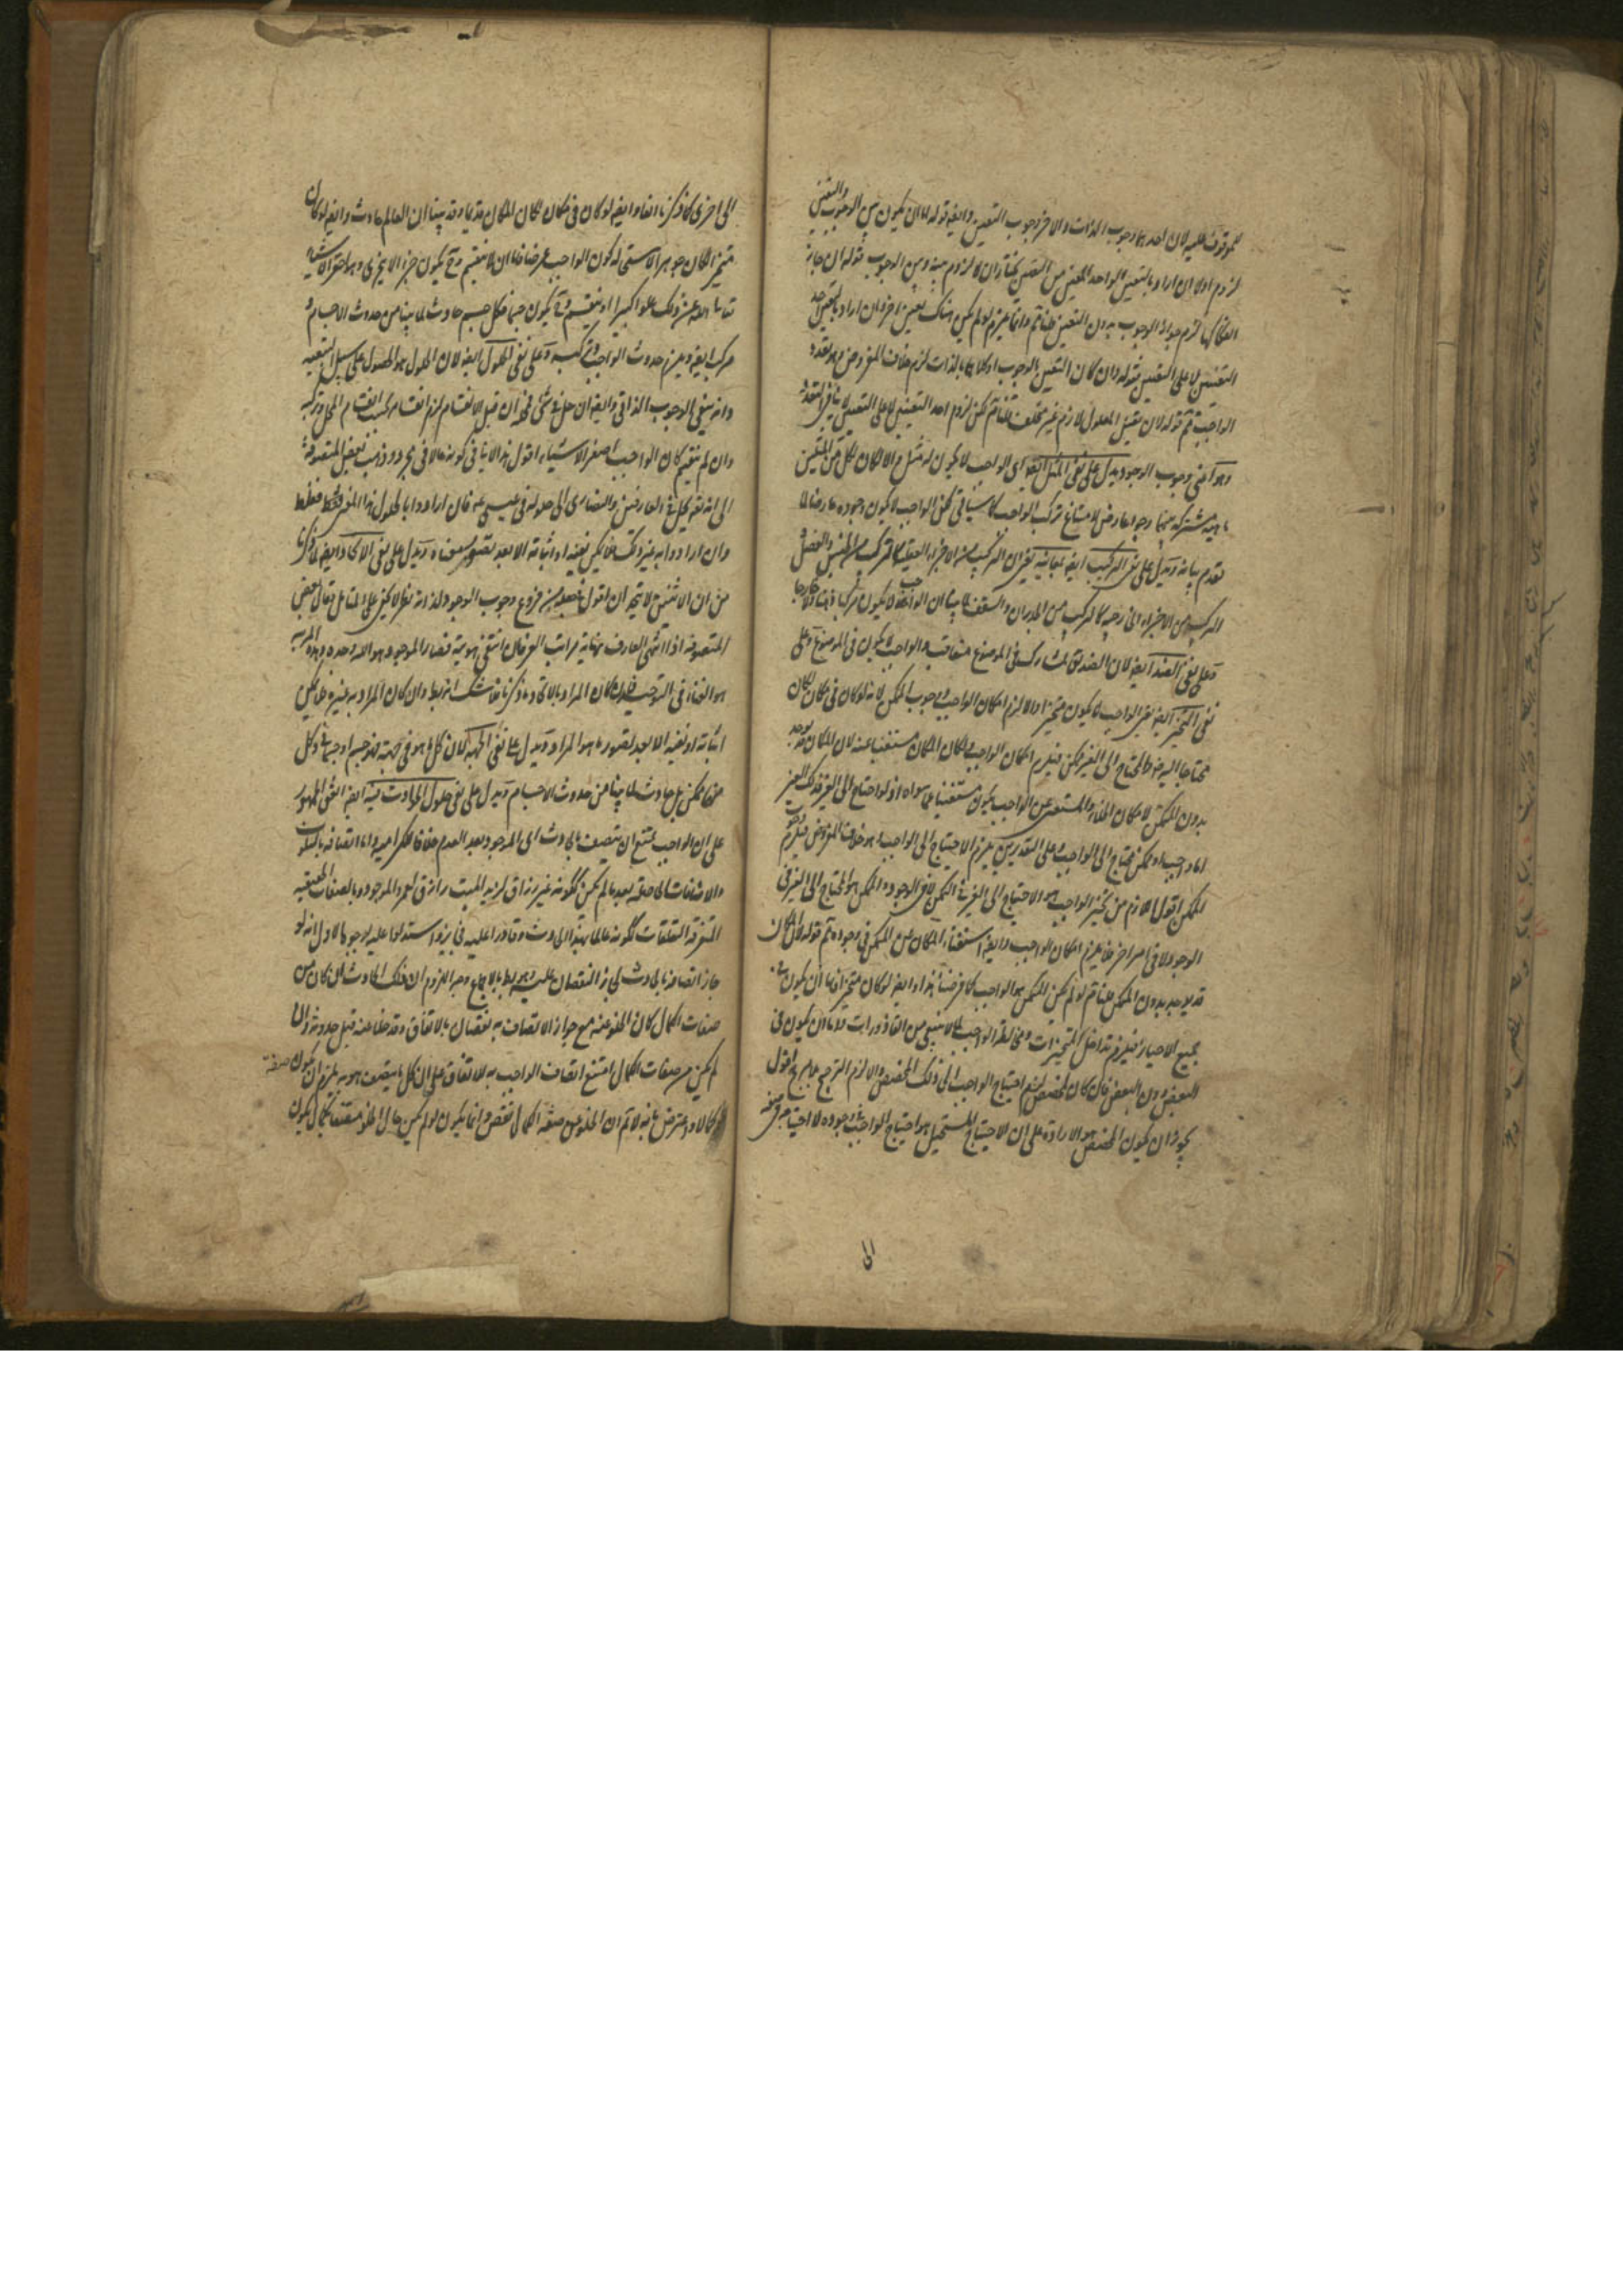 الموقوف عليه لان احدهما وجوب الذات والاخر وجوب التعين وايضا قوله اما ان يكون بين الوجوب والتعين
لزوم اولا ان اراد بالتعين الواحد المعين من التعين نختار ان لا لزوم بينه وبين الوجوب قوله ان جاز
انفكاكهما لزم جواز الوجوب بدون التعين قلنا تم وانما يلزم لو لم يكن هناك تعين اخر وان اراد به احد
التعينين لا على التعيين فقوله وان كان التعين بالوجوب او كلاهما بالذات لزم خلاف المفروض وهو تعدد
الواجب تم قوله لان المعلول لازم غير متخلف قلنا تم لكن لزوم احد التعينين لا على التعيين لا ينافي التعدد
وهو آ يعني وجوب الوجود يدل على نفي المثل ايضا اي الواجب لا يكون له مثل والا لكان لكل من المثلين
ماهية مشتركة بينهما وجوابها لامتناع تركب الواجب كما سيأتي لكن الواجب لا يكون وجوده عارضا لما
تقدم بيانه ويدل على نفي التركيب ايضا بمعانيه يعني ان التركيب من الاجزاء العقلية كالتركيب من الجنس والفصل
التركيب من الاجزاء الخارجية كالتركيب من الجدران والسقف لما بينا ان الواجب لا يكون مركبا ذهنا ولا خارجا
وعلى نفي الضد ايضا لان الضد يقال لمشارك في الموضوع معاقب والواجب لا يكون في الموضوع وعلى
نفي التحيز ايضا يعني الواجب لا يكون متحيزا والا لزم امكان الواجب ووجوب الممكن لانه لو كان في مكان لكان
محتاجا اليه ضرورة والمحتاج الى الغير ممكن فيلزم امكان الواجب ولكان المكان مستغنيا عنه لان المكان قد يوجد
بدون المتمكن لامكان الخلاء والمستغني عن الواجب يكون مستغنيا عما سواه اذ لو احتاج الى الغير فذلك الغير
اما واجب او ممكن محتاج الى الواجب وعلى التقديرين يلزم الاحتياج الى الواجب وهو خلاف المفروض فيلزم وجوب
الممكن اقول اللازم من تحيز الواجب هو الاحتياج الى الغير في التمكن لا في الوجود والممكن هو المحتاج الى الغير في
الوجود لا في امر اخر فلا يلزم امكان الواجب وايضا استغناء المكان عن المتمكن في وجوده تم قوله لان المكان
قد يوجد بدون المتمكن قلنا تم لو لم يكن المتمكن هو الواجب كما فرضنا هذا وايضا لو كان متحيزا فاما ان يكون في
جميع الاحياز فيلزم تداخل المتحيزات ومخالطة الواجب بما لا ينبغي من القاذورات واما ان يكون في
البعض دون البعض فان كان لمخصص لزم احتياج الواجب الى ذلك المخصص والا لزم الترجيح بلا مرجح اقول
يجوز ان يكون المخصص هو الارادة على ان الاحتياج المستحيل هو احتياج الواجب في وجوده لا احتياجه في صفة
الى
الى اخرى كما ذكرنا انفا وايضا لو كان في مكان لكان المكان قديما وقد بينا ان العالم حادث وايضا لو كان
متحيزا لكان جوهرا لاستحالة كون الواجب عرضا فاما ان لا ينقسم وح يكون جزءا لا يتجزى وهو احقر الاشياء
تعالى الله عن ذلك علوا كبيرا او ينقسم وح يكون جسما وكل جسم حادث لما بينا من حدوث الاجسام و
مركب ايضا ويلزم حدوث الواجب وتركبه وعلى نفي الحلول ايضا لان الحلول هو الحصول على سبيل التبعية
وانه ينفي الوجوب الذاتي وايضا ان حل في شيء فمحله ان قبل الانقسام لزم انقسامه بحسب انقسام المحل وتركبه
وان لم ينقسم كان الواجب اصغر الاشياء اقول هذا لا ينافي كونه حالا في مجرد وذهب بعض المتصوفة
الى انه تعالى يحل في العارفين والنصارى الى حلوله في عيسى عم فان ارادوا بالحلول هذا المعنى فقط
وان ارادوا به غير ذلك فلا يمكن نفيه او اثباته الا بعد تصور معناه ويدل على نفي الاتحاد ايضا لما ذكرنا
من ان الاثنين لا يتحدان اقول من فروع وجوب الوجود لذاته نظر لا يخفى على المتأمل وقال بعض
المتصوفة اذا انتهى العارف نهاية مراتب العرفان انتفى هويته فصار الموجود هو الله وحده وهذه المرتبة
هو الفناء في التوحيد فان كان المراد بالاتحاد ما ذكرنا فلا شك انه باطل وان كان المراد به غيره فلا يمكن
اثباته او نفيه الا بعد تصور ما هو المراد ويدل على نفي الجهة لان كل ما هو في جهة فهو جسم او جسماني وكل
منهما ممكن بل حادث لما بينا من حدوث الاجسام ويدل على نفي حلول الحوادث فيه ايضا اتفق الجمهور
على ان الواجب يمتنع ان يتصف بالحادث اي الموجود بعد العدم خلافا للكرامية واما اتصافه بالسلوب
والاضافات الحاصلة بعد ما لم يكن ككونه غير رازق لزيد الميت رازق لعمرو الموجود وبالصفات الحقيقية
المتغيرة التعلقات ككونه عالما بهذا الحادث وقادرا عليه فجائز واستدلوا عليه بوجوه الاول انه لو
جاز اتصافه بالحادث لجاز النقصان عليه وهو بط بالاجماع وجه اللزوم ان ذلك الحادث ان كان من
صفات الكمال كان الخلو عنه مع جواز الاتصاف به نقصان بالاتفاق وقد خلا عنه قبل حدوثه وان
لم يكن من صفات الكمال امتنع اتصاف الواجب به للاتفاق على ان كل ما يتصف هو به يلزم ان يكون صفة
كمال واعترض بانه لا تم ان الخلو عن صفة الكمال نقص وانما يكون لو لم يكن حال الخلو متصفا بكمال يكون